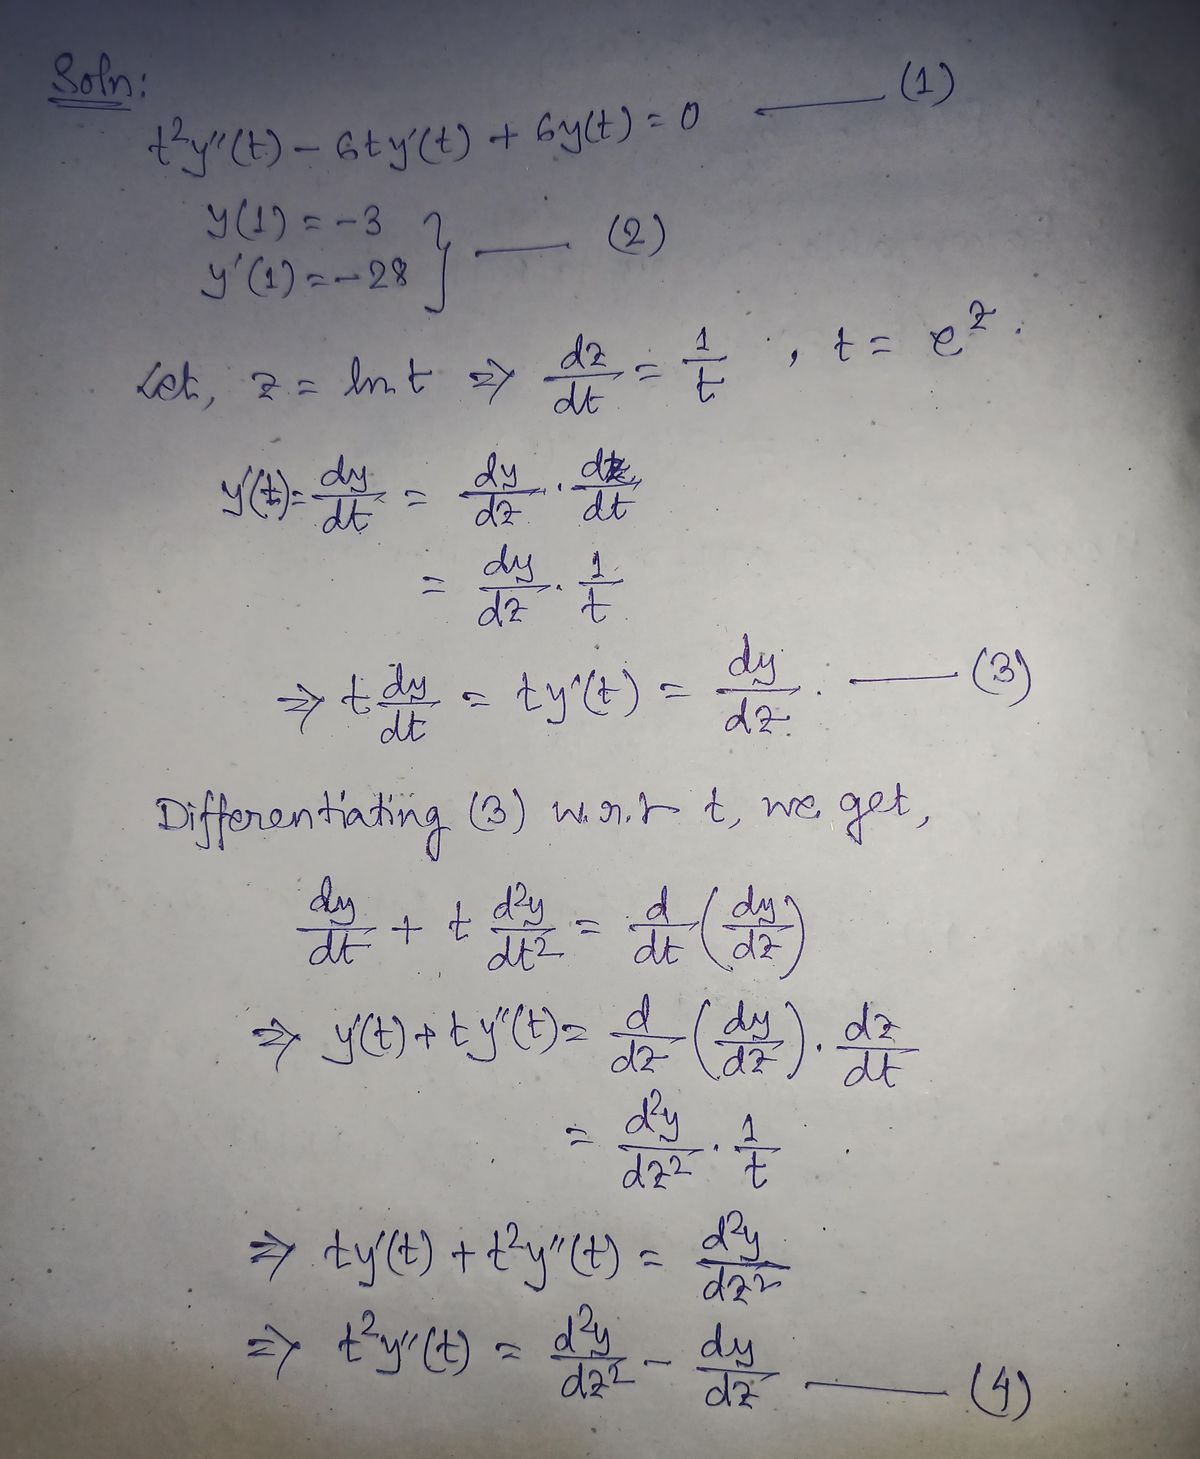 Soln:
t²y''(t) - 6ty'(t) + 6y(t) = 0 —— (1)
y(1) = -3
y'(1) = -28 } —— (2)
Let, z = ln t ⇒ dz/dt = 1/t, t = e^z.
y'(t) = dy/dt = dy/dz · dz/dt
= dy/dz · 1/t
⇒ t dy/dt = ty'(t) = dy/dz. —— (3)
Differentiating (3) w.r.t t, we get,
dy/dt + t d²y/dt² = d/dt (dy/dz)
⇒ y'(t) + ty''(t) = d/dz (dy/dz) · dz/dt
= d²y/dz² · 1/t
⇒ ty'(t) + t²y''(t) = d²y/dz²
⇒ t²y''(t) = d²y/dz² - dy/dz —— (4)